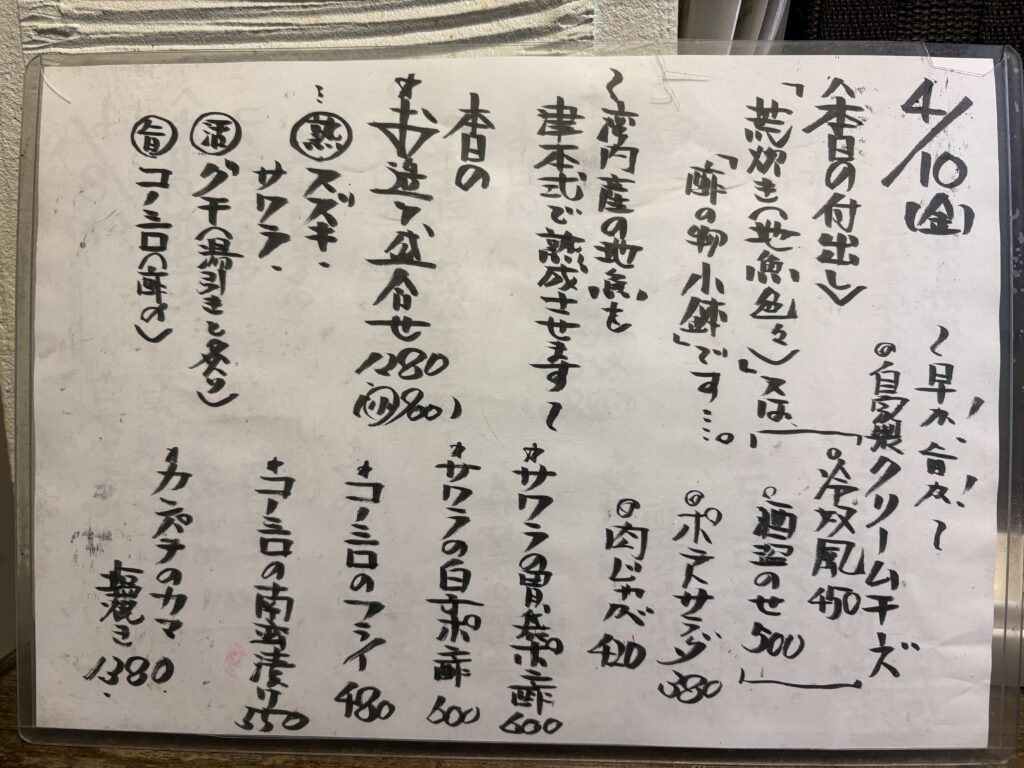 4/10(金)
〈本日の付出し〉
「荒炊き(地魚色々)」又は、
「酢の物小鉢」です…。
〜湾内産の地魚を
津本式で熟成させます〜
本日の
*お造り盛合せ 1280
(小)960
熟 スズキ.
サワラ.
活 グチ(湯引きと炙り)
旨 コノシロ(酢〆)
〜早め、旨め〜
◎自家製クリームチーズ
◦冷奴風 450
◦酒盗のせ 500
◎ポテトサラダ 380
◎肉じゃが 420
*サワラの胃袋ポン酢 600
*サワラの白子ポン酢 600
*コノシロのフライ 480
*コノシロの南蛮漬け 550
*カンパチのカマ
塩焼き 1380